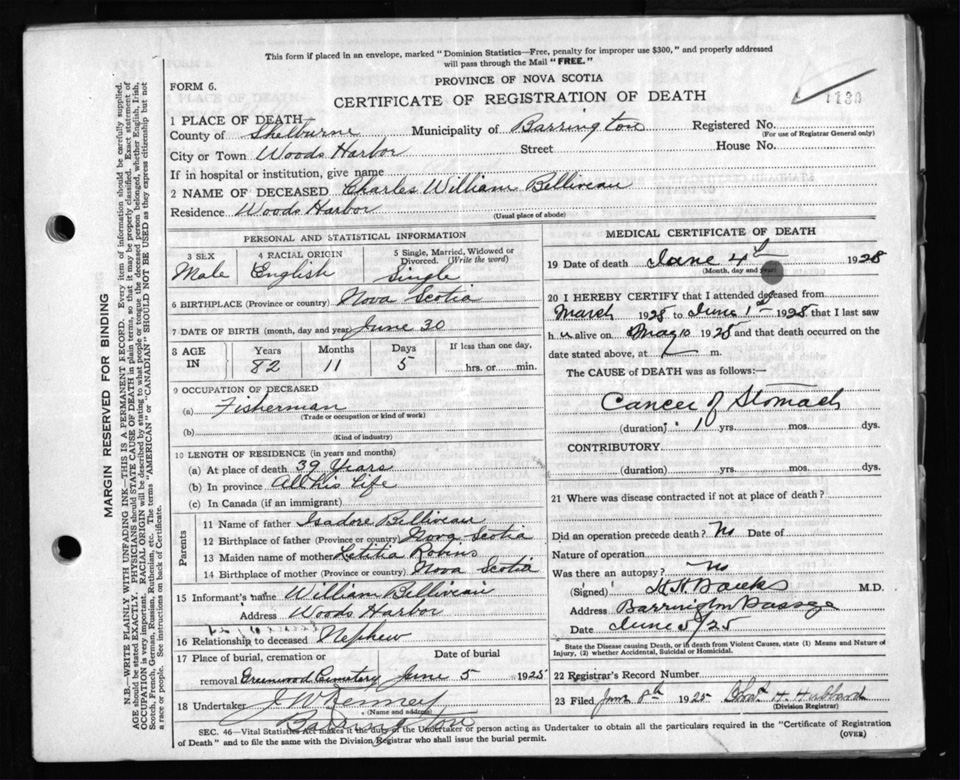 This form if placed in an envelope, marked "Dominion Statistics—Free, penalty for improper use $300," and properly addressed
will pass through the Mail "FREE."
FORM 6.
PROVINCE OF NOVA SCOTIA
CERTIFICATE OF REGISTRATION OF DEATH
1 PLACE OF DEATH
County of Shelburne Municipality of Barrington Registered No.
(For use of Registrar General only)
City or Town Woods Harbor Street House No.
If in hospital or institution, give name
2 NAME OF DECEASED Charles William Belliveau
Residence Woods Harbor
(Usual place of abode)
PERSONAL AND STATISTICAL INFORMATION
3 SEX 4 RACIAL ORIGIN 5 Single, Married, Widowed or Divorced. (Write the word)
Male English Single
6 BIRTHPLACE (Province or country) Nova Scotia
7 DATE OF BIRTH (month, day and year) June 30
8 AGE IN Years Months Days If less than one day,
82 11 5 hrs. or min.
9 OCCUPATION OF DECEASED
(a) Fisherman
(Trade or occupation or kind of work)
(b)
(Kind of industry)
10 LENGTH OF RESIDENCE (in years and months)
(a) At place of death 39 Years
(b) In province All his Life
(c) In Canada (if an immigrant)
Parents
11 Name of father Isadore Belliveau
12 Birthplace of father (Province or country) Nova Scotia
13 Maiden name of mother Letitia Robins
14 Birthplace of mother (Province or country) Nova Scotia
15 Informant's name William Belliveau
Address Woods Harbor
16 Relationship to deceased Nephew
17 Place of burial, cremation or Date of burial
removal Greenwood Cemetary June 5 1925
18 Undertaker
(Name and address)
Barrington
MEDICAL CERTIFICATE OF DEATH
19 Date of death June 4th 1928
(Month, day and year)
20 I HEREBY CERTIFY that I attended deceased from
March 1928 to June 1st 1928 that I last saw
h alive on May 10 1925 and that death occurred on the
date stated above, at m.
The CAUSE of DEATH was as follows:—
Cancer of Stomach
(duration) 1 yrs. mos. dys.
CONTRIBUTORY
(duration) yrs. mos. dys.
21 Where was disease contracted if not at place of death?
Did an operation precede death? No Date of
Nature of operation
Was there an autopsy? No
(Signed) M.D.
Address Barrington Passage
Date June 5/25
State the Disease causing Death, or in death from Violent Causes, state (1) Means and Nature of
Injury, (2) whether Accidental, Suicidal or Homicidal.
22 Registrar's Record Number
23 Filed June 8th 1925
(Division Registrar)
SEC. 46—Vital Statistics Act makes it the duty of the Undertaker or person acting as Undertaker to obtain all the particulars required in the "Certificate of Registration
of Death" and to file the same with the Division Registrar who shall issue the burial permit.
(OVER)
MARGIN RESERVED FOR BINDING
N.B.—WRITE PLAINLY WITH UNFADING INK—THIS IS A PERMANENT RECORD. Every item of information should be carefully supplied.
AGE should be stated EXACTLY. PHYSICIANS should STATE CAUSE OF DEATH in plain terms, so that it may be properly classified. Exact statement of
OCCUPATION is very important. RACIAL ORIGIN will be described by stating to what people or tongue the deceased person belonged, whether English, Irish,
Scotch, French, German, Russian, Ruthenian, etc. The terms "AMERICAN" or "CANADIAN" SHOULD NOT BE USED as they express citizenship but not
a race or people. See instructions on back of Certificate.